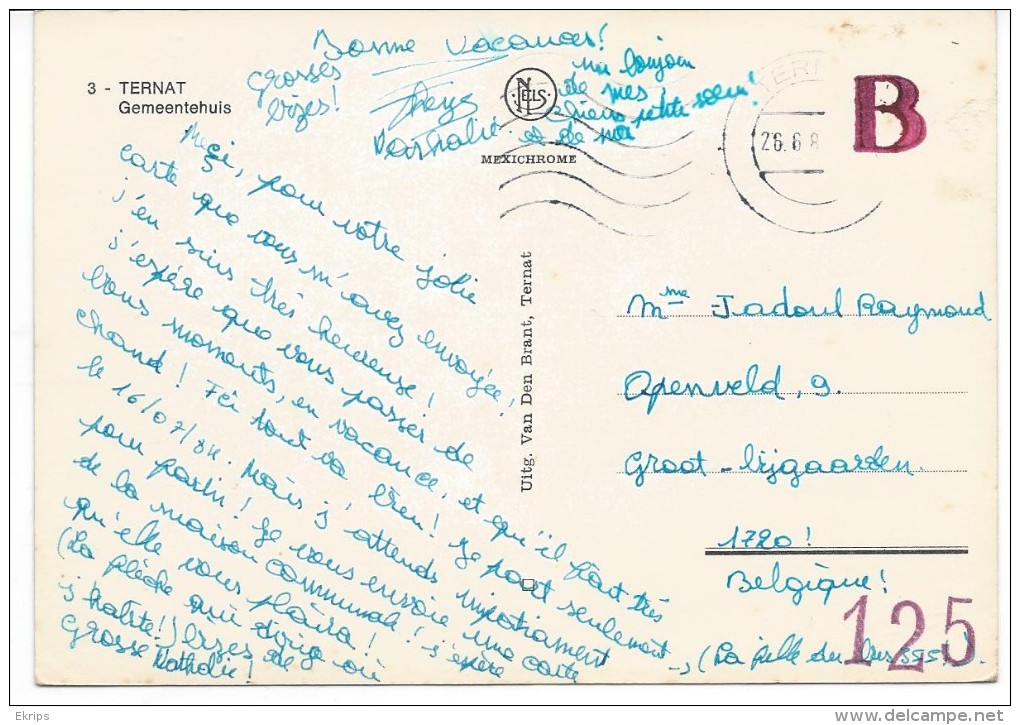 Bonne Vacances!
Grosses
bizes!
Nathalie
un bonjour
de mes
chiens petite soeur!
et de moi
3 - TERNAT
Gemeentehuis
NELS
MEXICHROME
TERN
26.6.8
B
Merci, pour votre jolie
carte que vous m'avez envoyée!
j'en suis très heureuse!
j'espère que vous passer de
bons moments, en vacance, et qu'il fait très
chaud! Içi tout va bien! Je part seulement
le 16/07/84. Mais j'attends impatiament
pour partir! Je vous envoie une carte
de la maison communal! j'espère
qu'elle vous plaira!
(La flèche qui dirige où
j'habite!) Bizes de
Grosse Nathalie!
(La fille du bus 355!).
Uitg. Van Den Brant, Ternat
Mme Jadoul Raymond
Openveld, 9.
Groot-bijgaarden.
1720!
Belgique!
125
Ekrips
www.delcampe.net